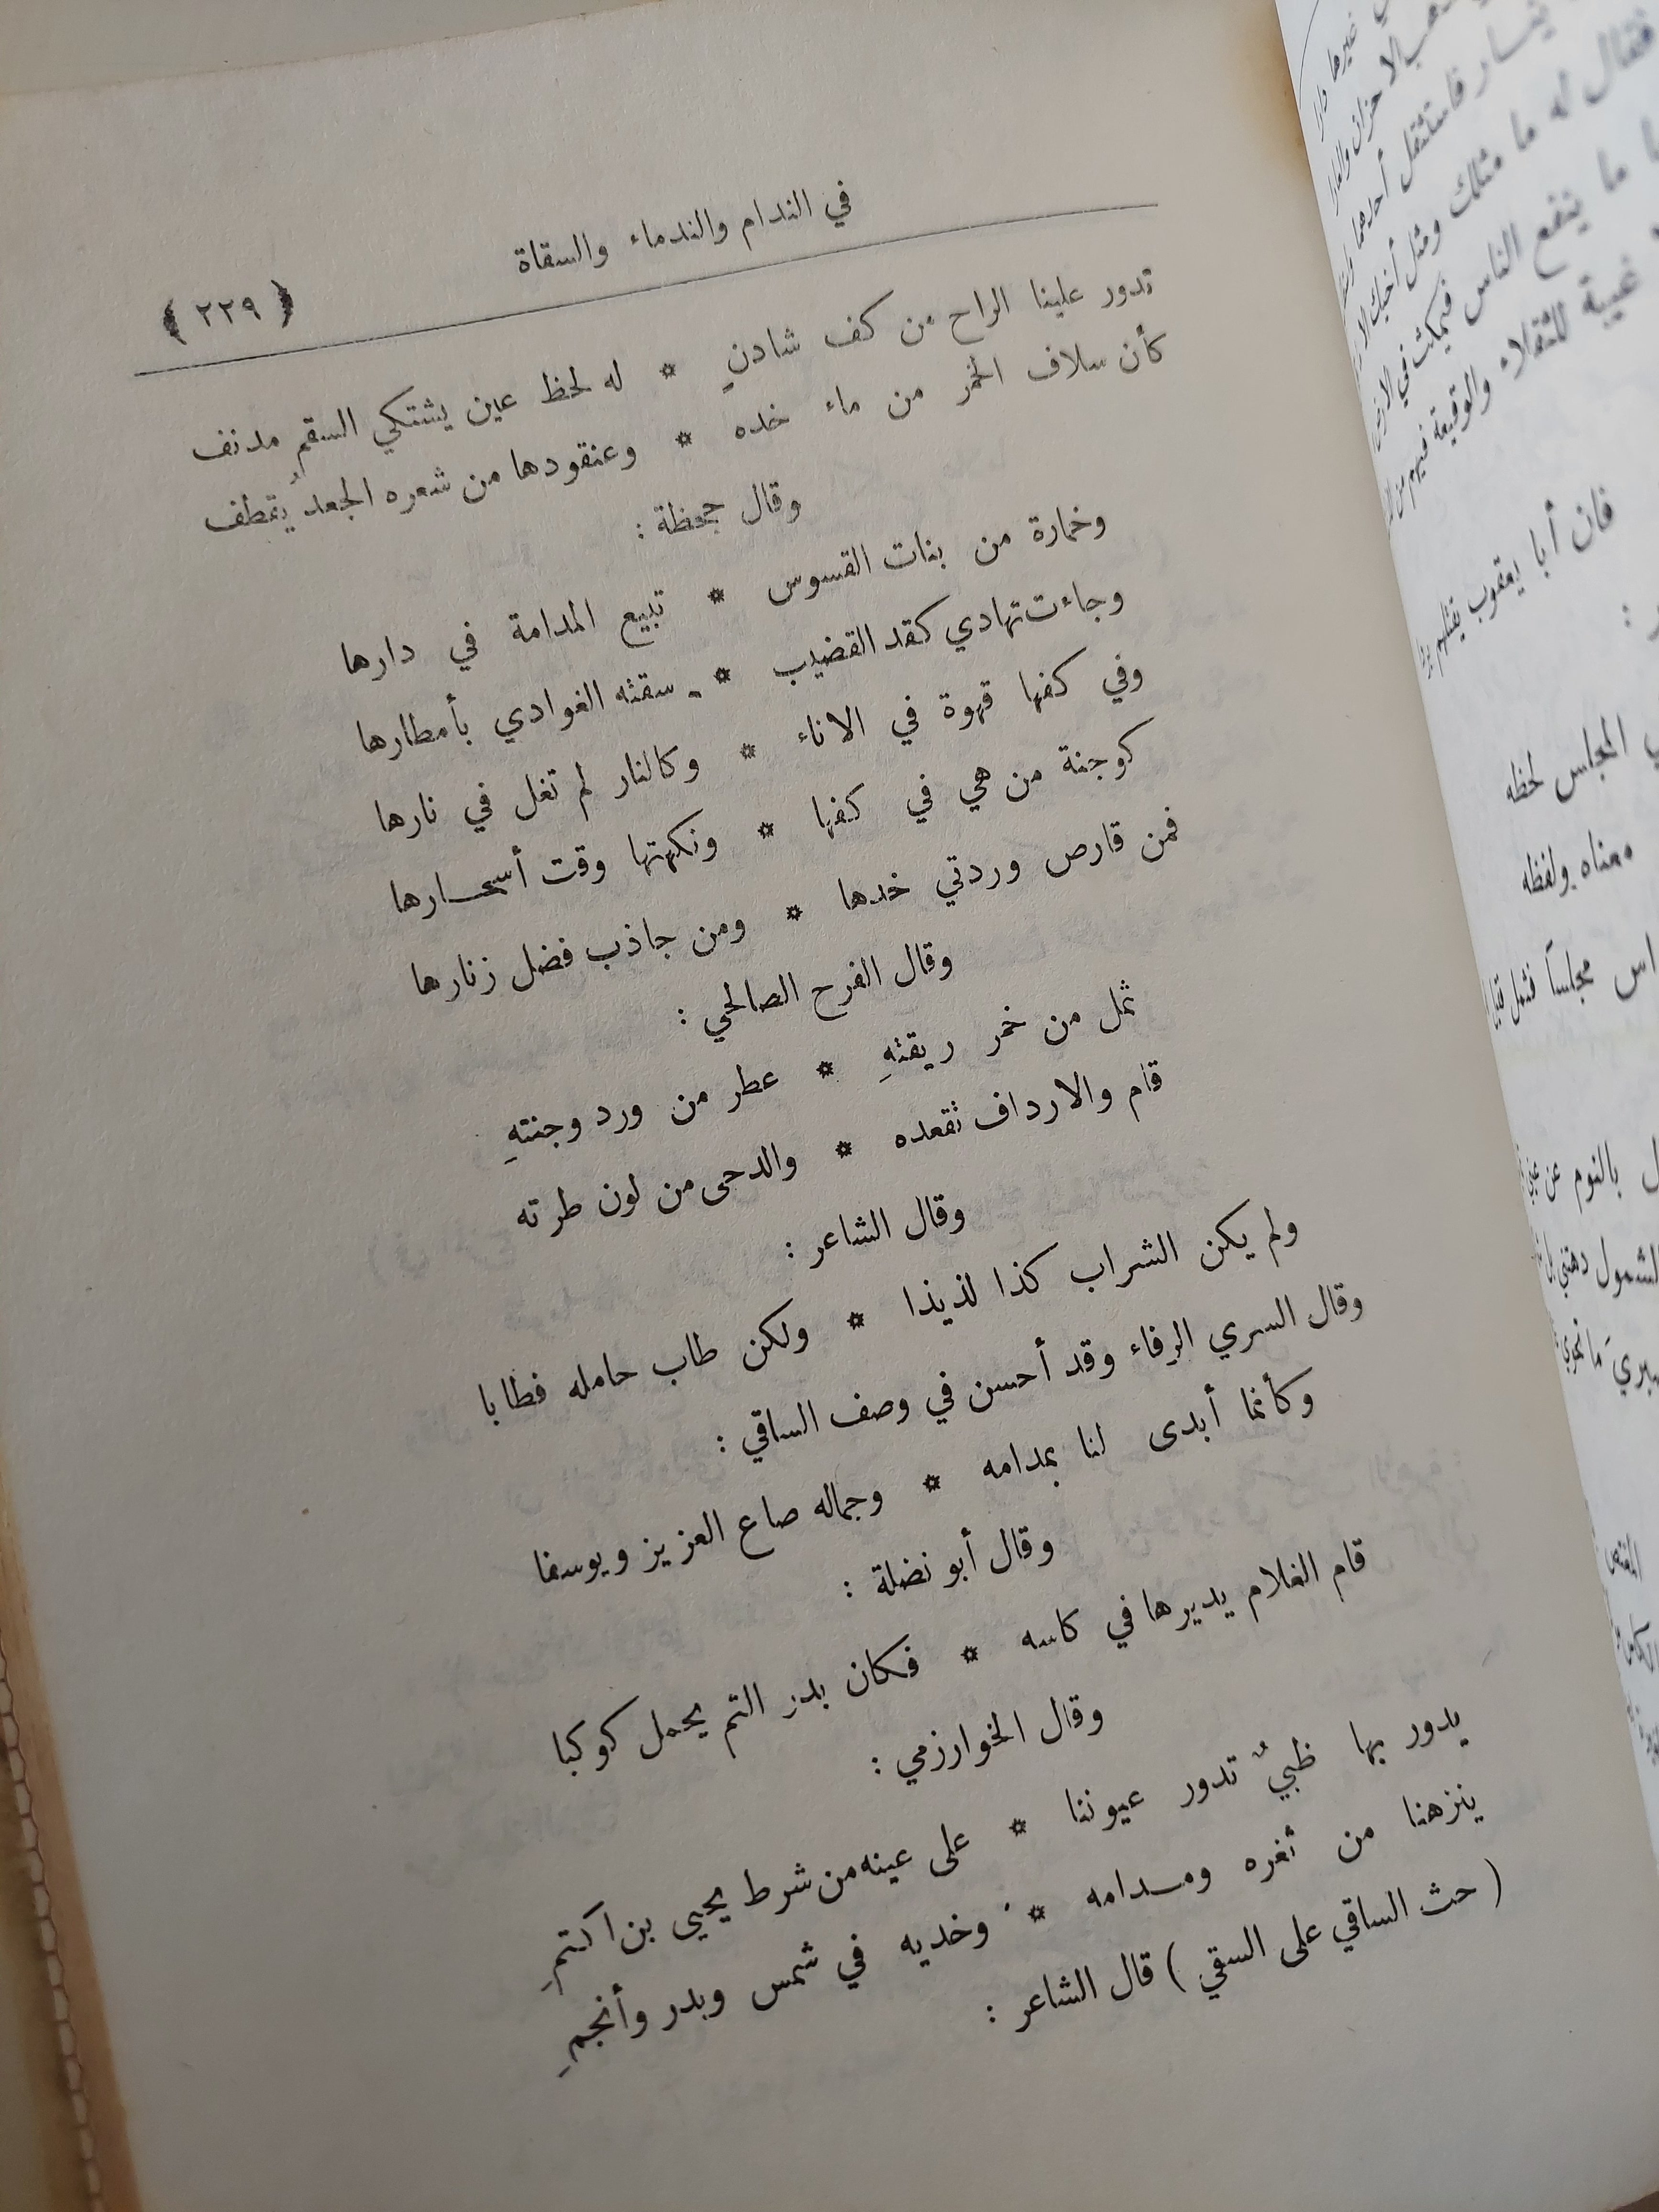 في الندام والندماء والسقاة
﴿ ٢٢٩ ﴾
تدور علينا الراح من كف شادنٍ * له لحظ عين يشتكي السقم مدنف
كأن سلاف الخمر من ماء خده * وعنقودها من شعره الجعد يُقطف
وقال جحظة :
وخمارة من بنات القسوس * تبيع المدامة في دارها
وجاءت تهادي كقد القضيب * سقته الغوادي بأمطارها
وفي كفها قهوة في الاناء * وكالنار لم تغل في نارها
كوجنة من هي في كفها * ونكهتها وقت أسحارها
فمن قارص وردتي خدها * ومن جاذب فضل زنارها
وقال الفرح الصالحي :
ثمل من خمر ريقتهِ * عطر من ورد وجنتهِ
قام والارداف تقعده * والدحى من لون طرته
وقال الشاعر :
ولم يكن الشراب كذا لذيذا * ولكن طاب حامله فطابا
وقال السري الرفاء وقد أحسن في وصف الساقي :
وكأنما أبدى لنا بمدامه * وجماله صاع العزيز ويوسفا
وقال أبو نضلة :
قام الغلام يديرها في كاسه * فكان بدر التم يحمل كوكبا
وقال الخوارزمي :
يدور بها ظبيٌ تدور عيوننا * على عينه من شرط يحيى بن اكتمِ
ينزهنا من ثغره ومدامه * وخديه في شمس وبدر وأنجمِ
( حث الساقي على السقي ) قال الشاعر :
غيرها
فقال له ما مثلك ومثل أخيك
ما ينفع الناس فيمكث في الارض
غيبة للثقلاء والوقيعة فيهم
فان أبا يعقوب
المجلس لحظه
معناه ولفظه
مجلساً
بالنوم عن